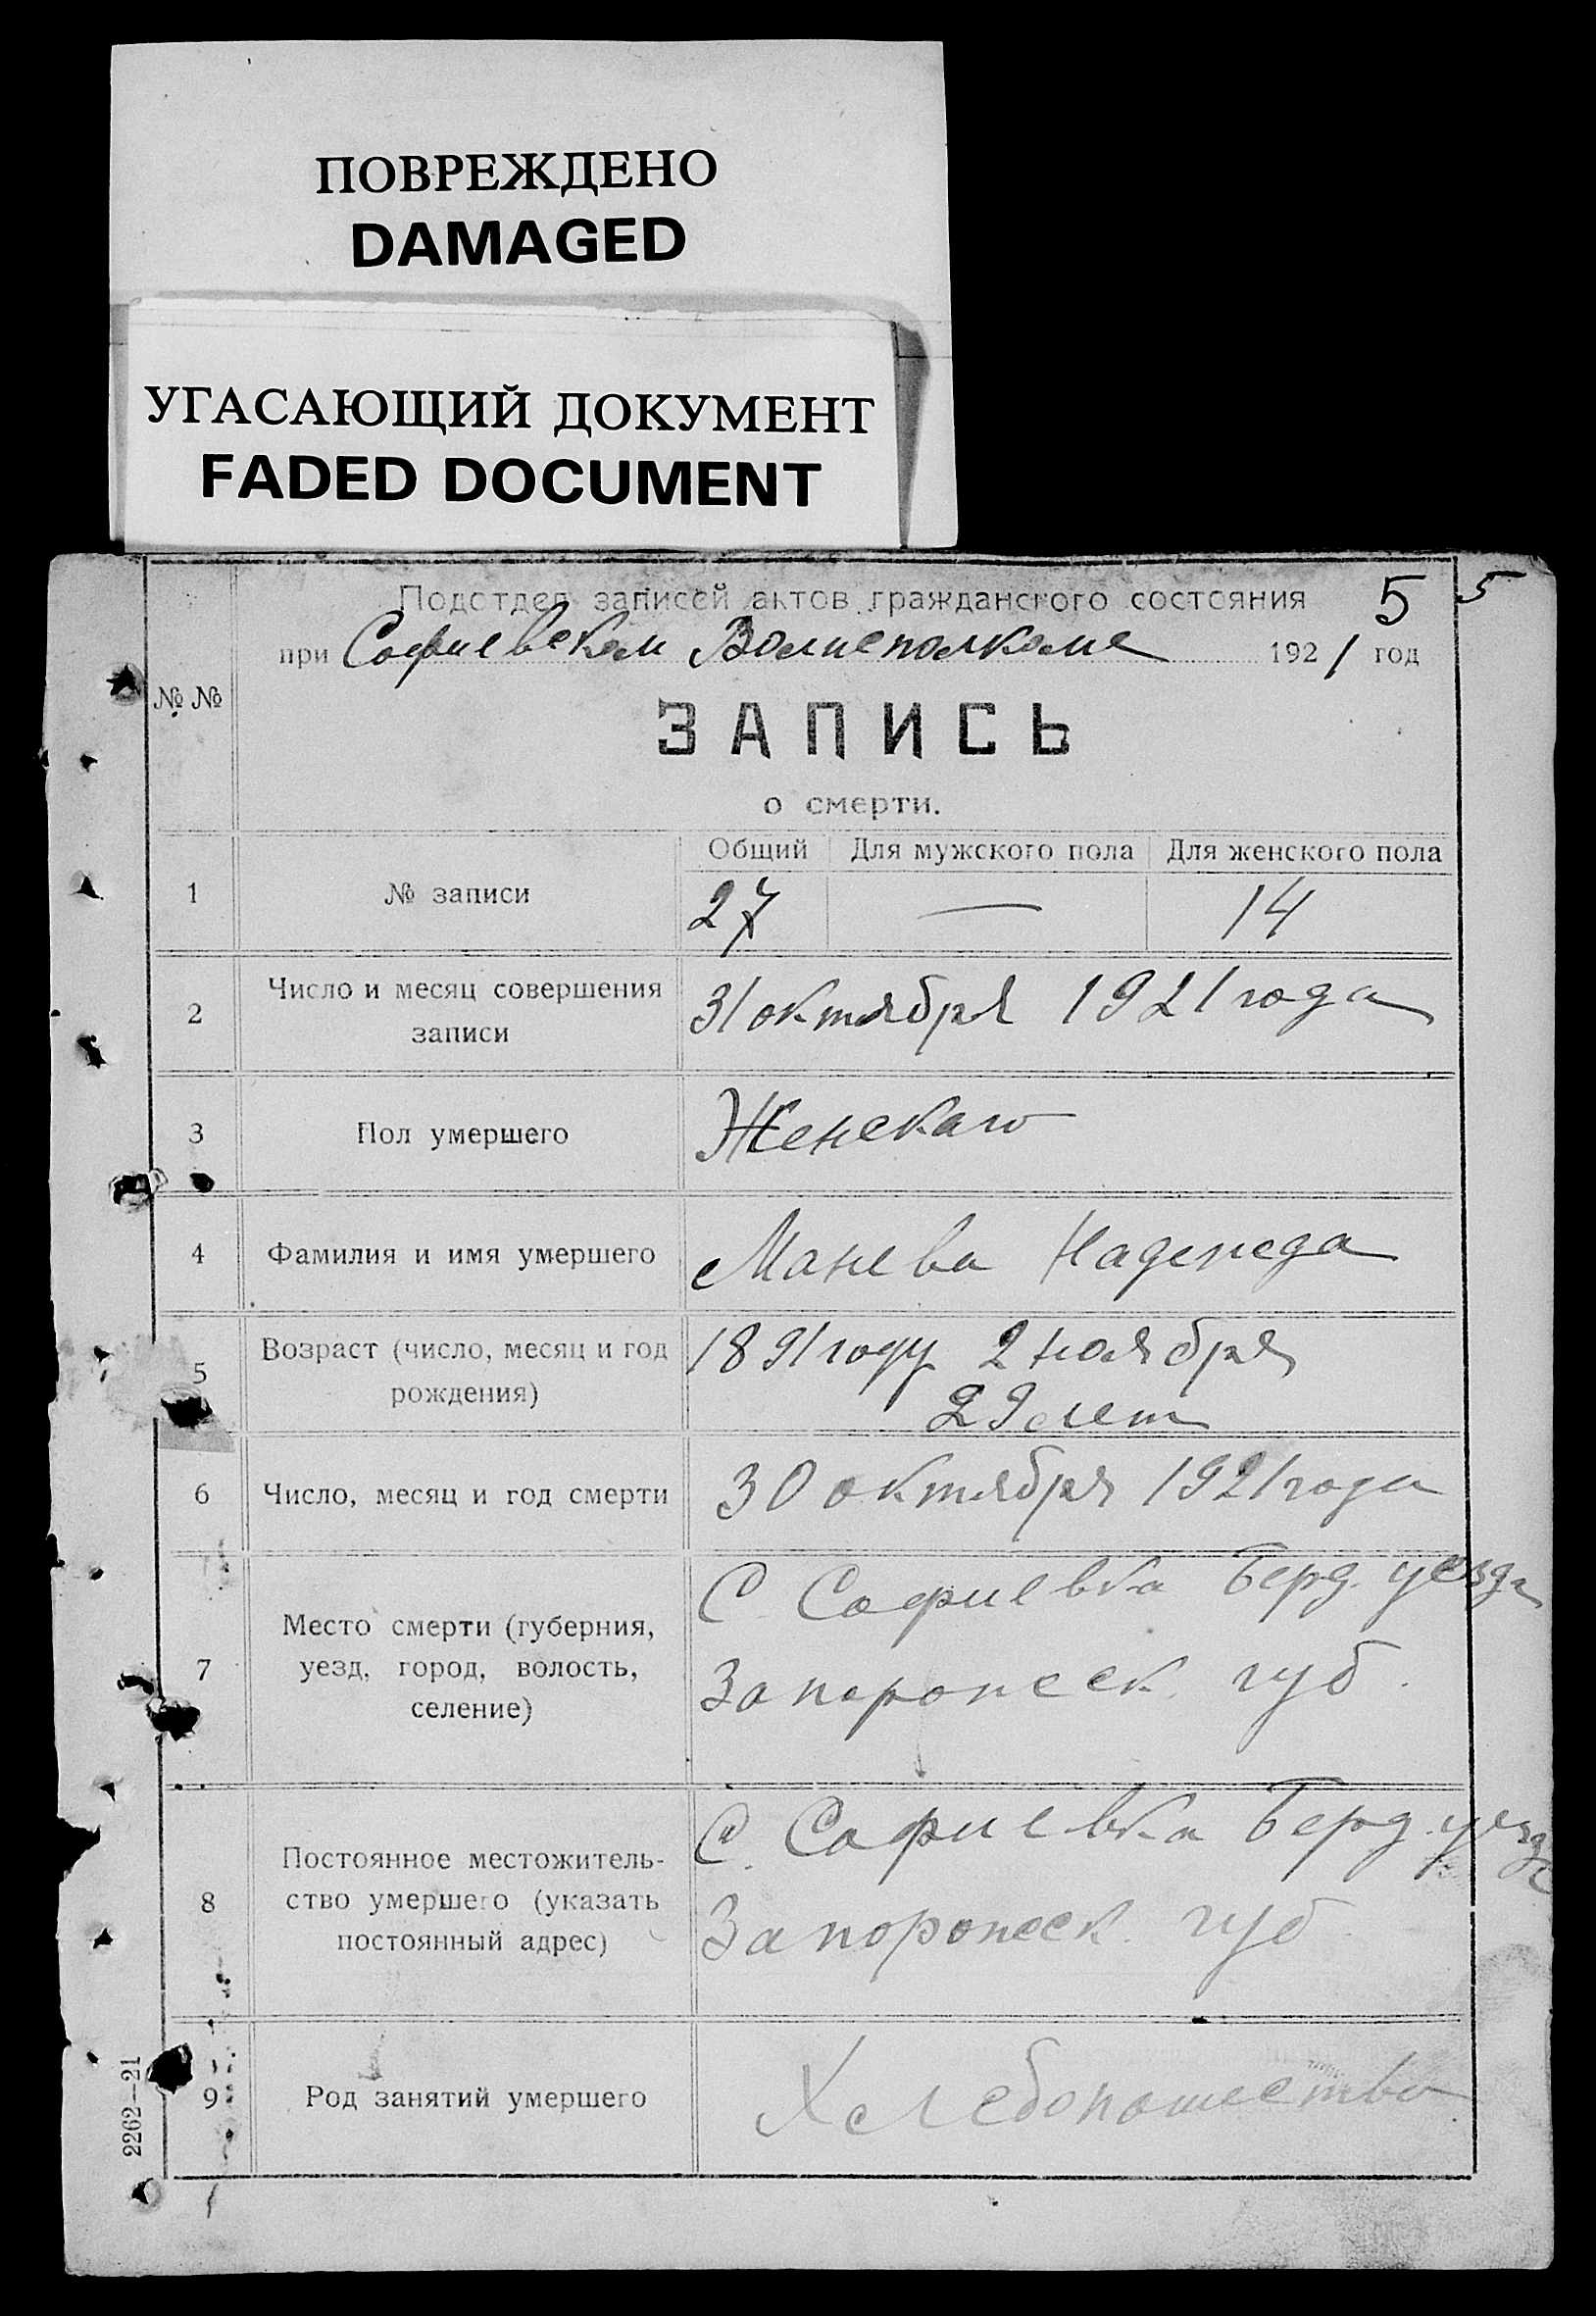 ПОВРЕЖДЕНО
DAMAGED
УГАСАЮЩИЙ ДОКУМЕНТ
FADED DOCUMENT
Подотдел записей актов гражданского состояния 5 5
при Софиевском Волисполкоме 1921 год
№ №
ЗАПИСЬ
о смерти.
Общий Для мужского пола Для женского пола
1 № записи 27 — 14
2 Число и месяц совершения
записи 31 октября 1921 года
3 Пол умершего Женскаго
4 Фамилия и имя умершего Манева Надежда
5 Возраст (число, месяц и год
рождения) 1891 году 2 ноября
29 лет
6 Число, месяц и год смерти 30 октября 1921 года
7 Место смерти (губерния,
уезд, город, волость,
селение) С. Софиевка Берд. уезда
Запорожск. губ.
8 Постоянное местожитель-
ство умершего (указать
постоянный адрес) С. Софиевка Берд. уезда
Запорожск. губ
9 Род занятий умершего Хлебопашество
2262—21